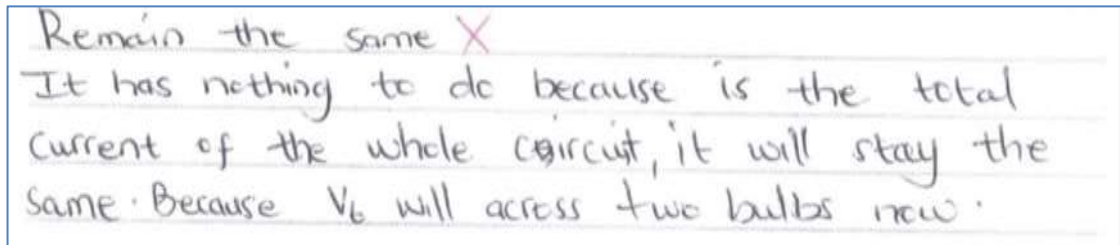 Remain the same X
It has nothing to do because is the total
current of the whole coircuit, it will stay the
same. Because V6 will across two bulbs now.